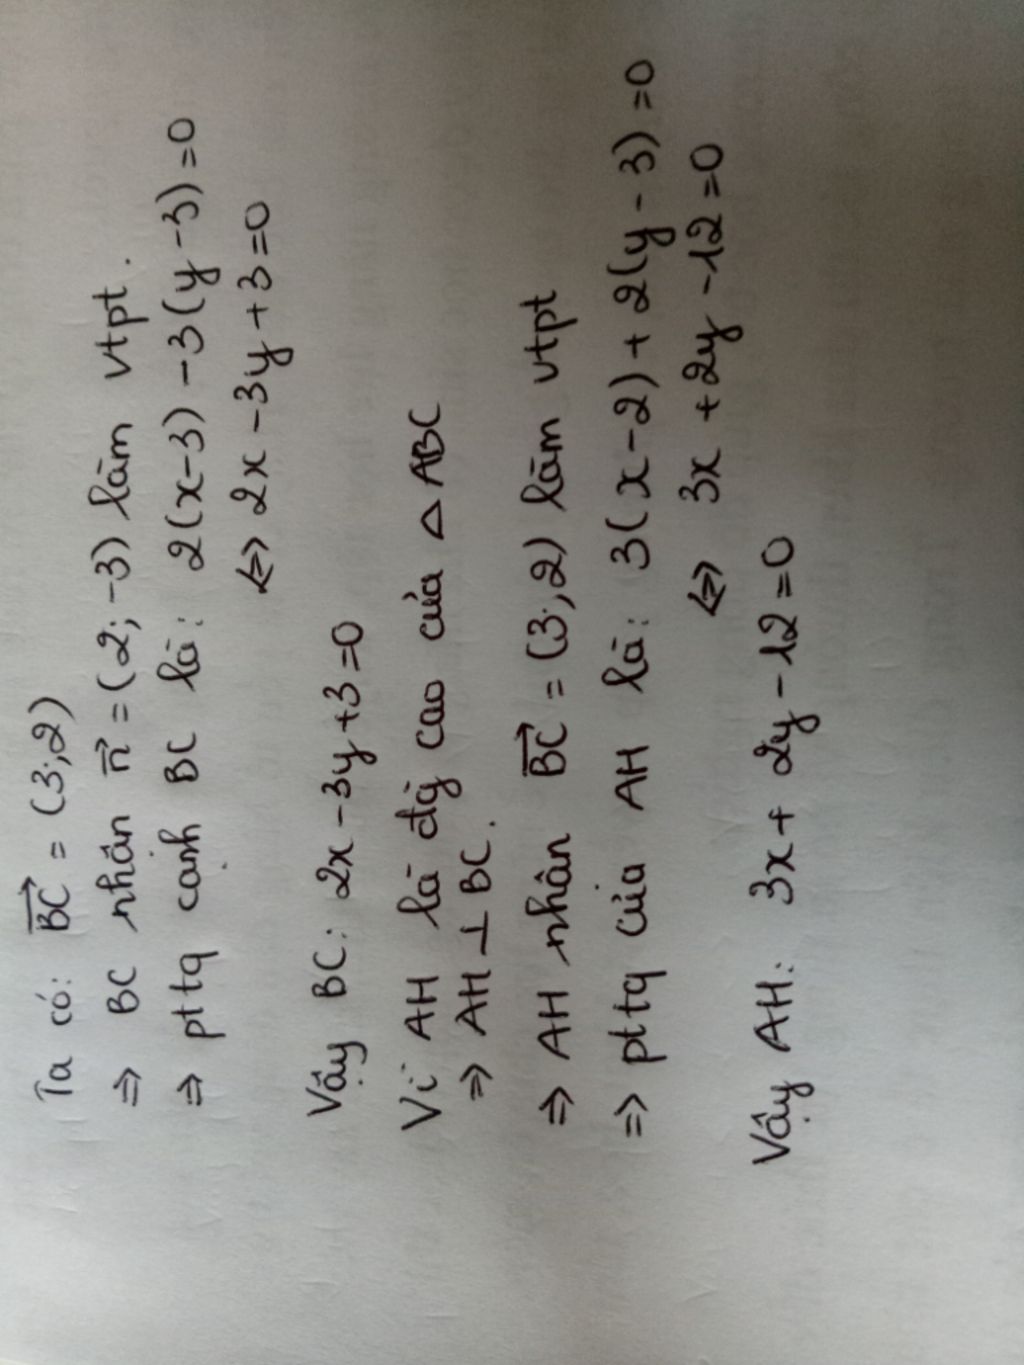 Ta có: BC→ = (3;2)
⇒ BC nhân n→ = (2; -3) làm vtpt.
⇒ pttq cạnh BC là: 2(x-3) -3(y-3)=0
⇔ 2x -3y +3=0
Vậy BC: 2x -3y+3=0
Vì AH là đg cao của △ABC
⇒ AH ⊥ BC.
⇒ AH nhân BC→ = (3;2) làm vtpt
⇒ pttq của AH là: 3(x-2)+2(y-3)=0
⇔ 3x +2y -12=0
Vậy AH: 3x+ 2y -12=0